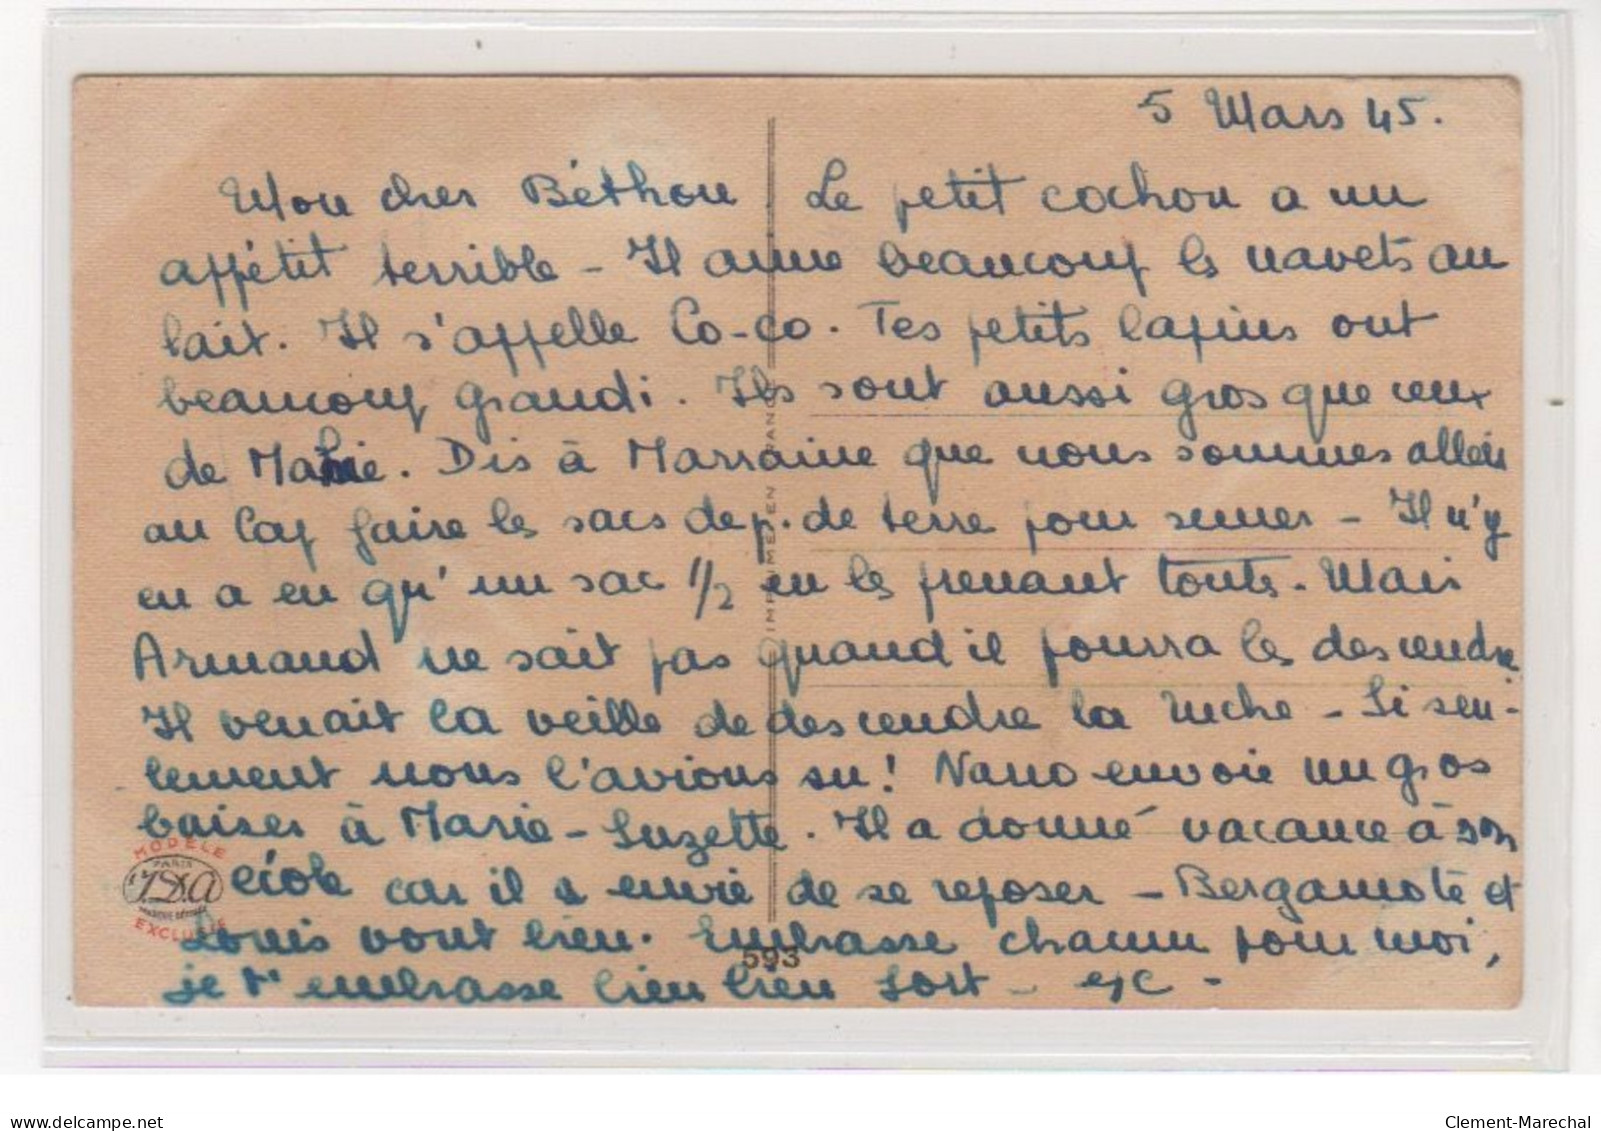 5 Mars 45.
Mon cher Béthou, Le petit cochon a un
appétit terrible - Il aime beaucoup les navets au
lait. Il s'appelle Co-co. Tes petits lapins ont
beaucoup grandi. Ils sont aussi gros que ceux
de Marie. Dis à Marraine que nous sommes allés
au Cap faire les sacs de p. de terre pour semer - Il n'y
en a eu qu'un sac 1/2 en les prenant toutes. Mais
Armand ne sait pas quand il pourra les descendre
Il venait la veille de descendre la ruche - Si seu-
lement nous l'avions su! Nano envoie un gros
baiser à Marie-Suzette. Il a donné vacance à son
école car il a envie de se reposer - Bergamote et
Louis vont bien. Embrasse chacun pour moi,
je t'embrasse bien bien fort -
IMPRIMÉ EN FRANCE
593
MODÈLE
PARIS
IDA
EXCLUSIF
www.delcampe.net
Clement-Marechal